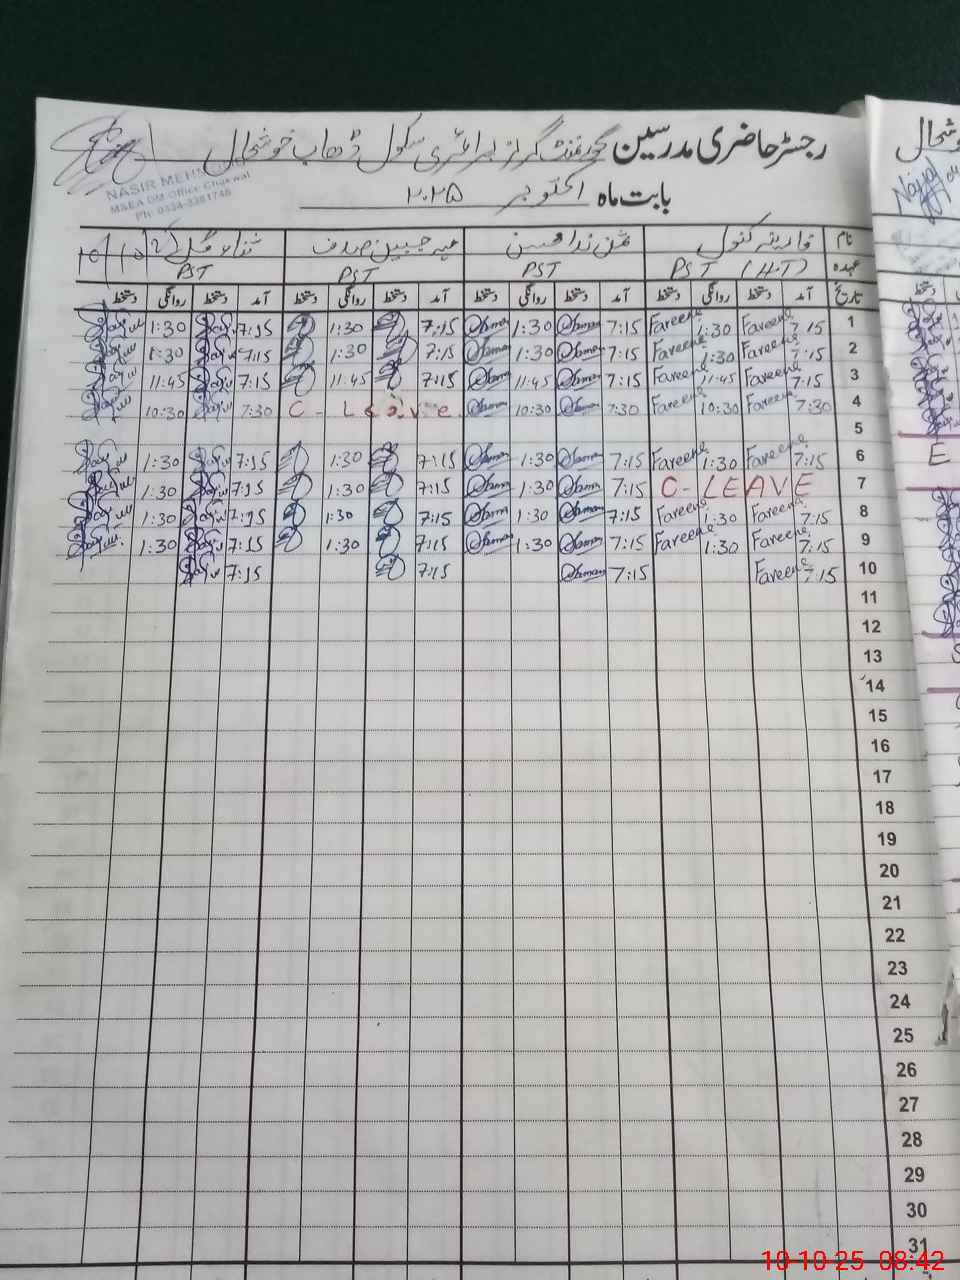 رجسٹر حاضری مدرسین گورنمنٹ گرلز پرائمری سکول ڈھاب خوشحال
بابت ماہ اکتوبر ۲۰۲۵
NASIR MEHM
M&EA DM Office Chakwal
Ph: 0334-8381748
10/10/25
نام فارینہ کنول ندا حسن مہ جبین صدف ثناء گل
عہدہ PST (H.T) PST PST PST
تاریخ آمد دستخط روانگی دستخط آمد دستخط روانگی دستخط آمد دستخط روانگی دستخط آمد دستخط روانگی دستخط
1 7:15 Fareene 1:30 Fareene 7:15 1:30 7:15 1:30 7:15 1:30
2 7:15 Fareene 1:30 Fareene 7:15 1:30 7:15 1:30 7:15 1:30
3 7:15 Fareene 11:45 Fareene 7:15 11:45 7:15 11:45 7:15 11:45
4 7:30 Fareene 10:30 Fareene 7:30 10:30 C-Leave 7:30 10:30
5
6 7:15 Fareene 1:30 Fareene 7:15 1:30 7:15 1:30 7:15 1:30
7 C-LEAVE 7:15 1:30 7:15 1:30 7:15 1:30
8 7:15 Fareene 1:30 Fareene 7:15 1:30 7:15 1:30 7:15 1:30
9 7:15 Fareene 1:30 Fareene 7:15 1:30 7:15 1:30 7:15 1:30
10 7:15 Fareene 7:15 7:15 7:15
11
12
13
14
15
16
17
18
19
20
21
22
23
24
25
26
27
28
29
30
31
10-10-25 08:42